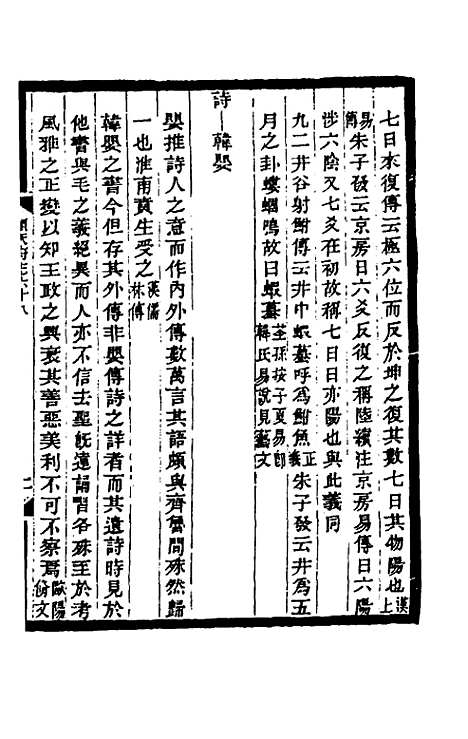 七日來復傳云極六位而反於坤之復其數七日其物陽也漢上
易傳朱子發云京房曰六爻反復之稱陸績注京房易傳曰六陽
涉六陰又七爻在初故稱七日日亦陽也與此義同
九二井谷射鮒傳云井中蝦蟇呼爲鮒魚正義朱子發云井爲五
月之卦螻蟈鳴故曰蝦蟇荃孫按子夏易卽韓氏易說見藝文
詩—韓嬰
嬰推詩人之意而作內外傳數萬言其語頗與齊魯間殊然歸
一也淮南賁生受之漢儒林傳
韓嬰之書今但存其外傳非嬰傳詩之詳者而其遺詩時見於
他書與毛之義絕異而人亦不信去聖旣遠誦習各殊至於考
風雅之正變以知王政之興衰其善惡美刺不可不察焉歐陽修文